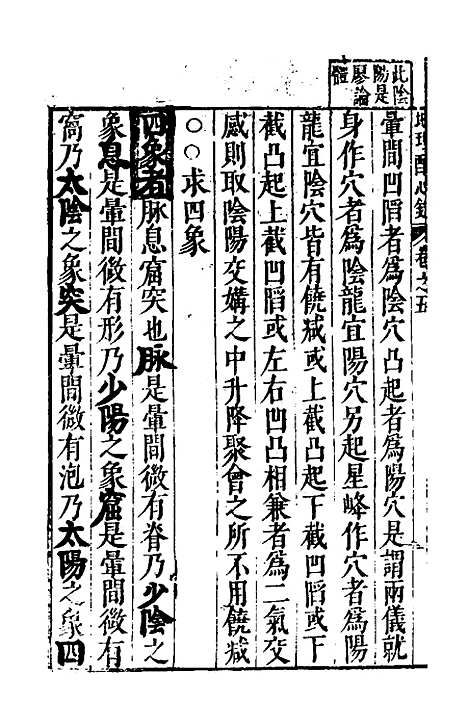 此陰
陽是
廖論
體
地理酉心錄
卷之五
暈間凹䧟者為陰穴凸起者為陽穴是謂兩儀就
身作穴者為陰龍宜陽穴另起星峰作穴者為陽
龍宜陰穴皆有饒減或上截凸起下截凹䧟或下
截凸起上截凹䧟或左右凹凸相兼者為二氣交
感則取陰陽交媾之中升降聚會之所不用饒減
○○求四象
四象者脉息窟突也脉是暈間微有脊乃少陰之
象息是暈間微有形乃少陽之象窟是暈間微有
窩乃太陰之象突是暈間微有泡乃太陽之象四